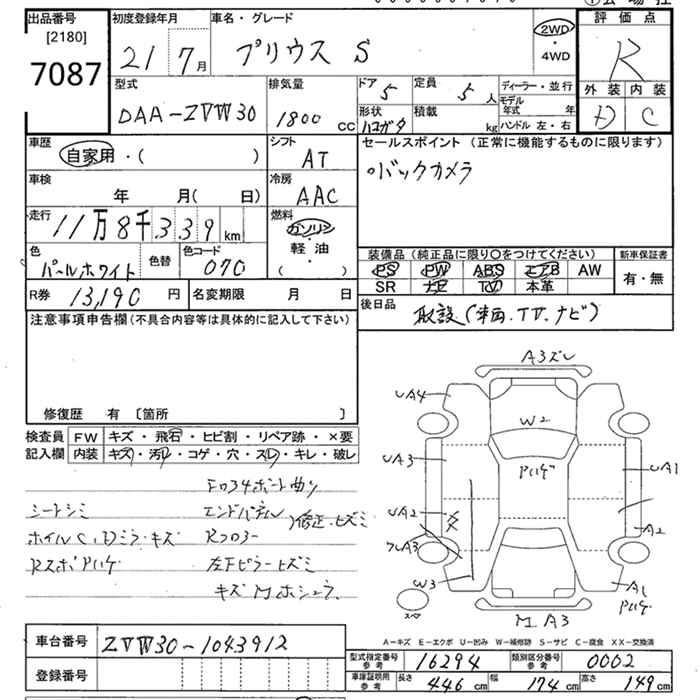 出品番号 初度登録年月 車名・グレード 評価点
[2180] 21 7月 プリウス S 2WD・4WD R
7087
型式 排気量 ドア 定員 ディーラー・並行 外装 内装
DAA-ZVW30 1800 CC 5 5人 モデル年式 年 D C
形状 積載
ハコガタ kg ハンドル 左・右
車歴 シフト セールスポイント(正常に機能するものに限ります)
自家用・( ) AT ○バックカメラ
車検 冷房
年 月( 日) AAC
走行 燃料
11万8千339km ガソリン・軽油・( )
色 色替 色コード 装備品(純正品に限り○をつけてください) 新車保証書
パールホワイト 070 PS PW ABS エアB AW 有・無
SR ナビ TV 本革
R券 13,190円 名変期限 月 日 後日品
取説(車両.TV.ナビ)
注意事項申告欄(不具合内容等は具体的に記入して下さい)
修復歴 有 〔箇所 〕
検査員 FW キズ・飛石・ヒビ割・リペア跡・×要
記入欄 内装 キズ・汚レ・コゲ・穴・スレ・キレ・破レ
シートシミ エンドパネル
左下ピラーヒズミ
A3ズレ
UA4
W2
UA3
UA1
UA2
A2
W3
A1
M A3
A-キズ E-エクボ U-凹み W-補修跡 S-サビ C-腐食 XX-交換済
車台番号 ZVW30-1043912
型式指定番号 参考 16294 類別区分番号 参考 0002
登録番号
車庫証明用 参考 長さ 446cm 幅 174cm 高さ 149cm